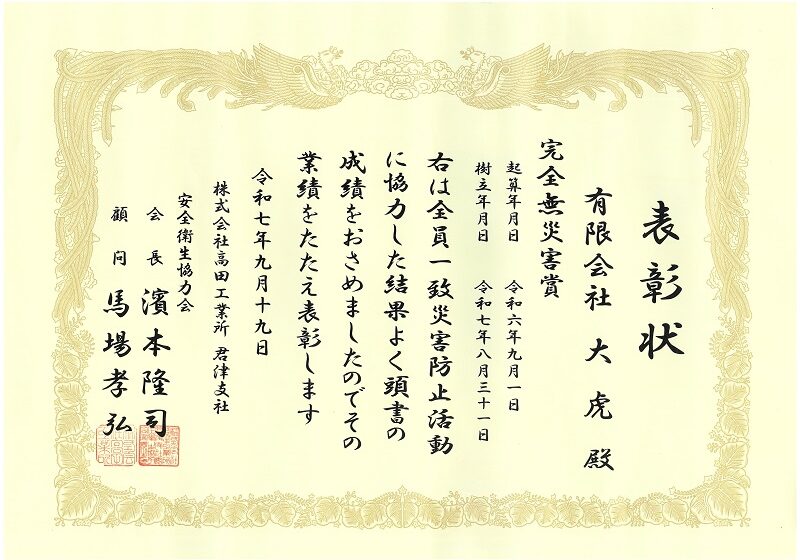 表彰状
有限会社 大虎 殿
完全無災害賞
起算年月日 令和六年九月一日
樹立年月日 令和七年八月三十一日
右は全員一致災害防止活動
に協力した結果よく頭書の
成績をおさめましたのでその
業績をたたえ表彰します
令和七年九月十九日
株式会社高田工業所 君津支社
安全衛生協力会
会長 濱本隆司
顧問 馬場孝弘